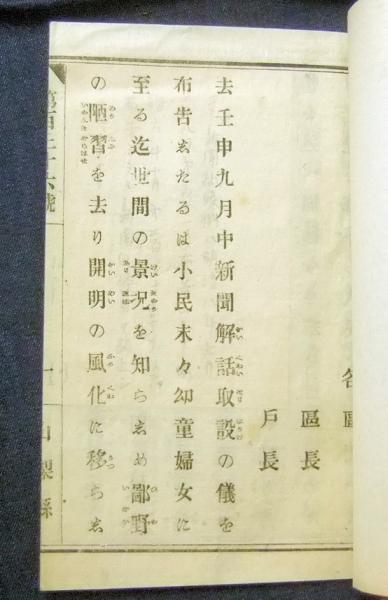 各區
區長
戸長
去壬申九月中新聞解話取設の儀を
布告ゑたるは小民末々幼童婦女に
至る迄世間の景况を知らゑめ鄙野
の陋習を去り開明の風化に移らゑ
山梨縣